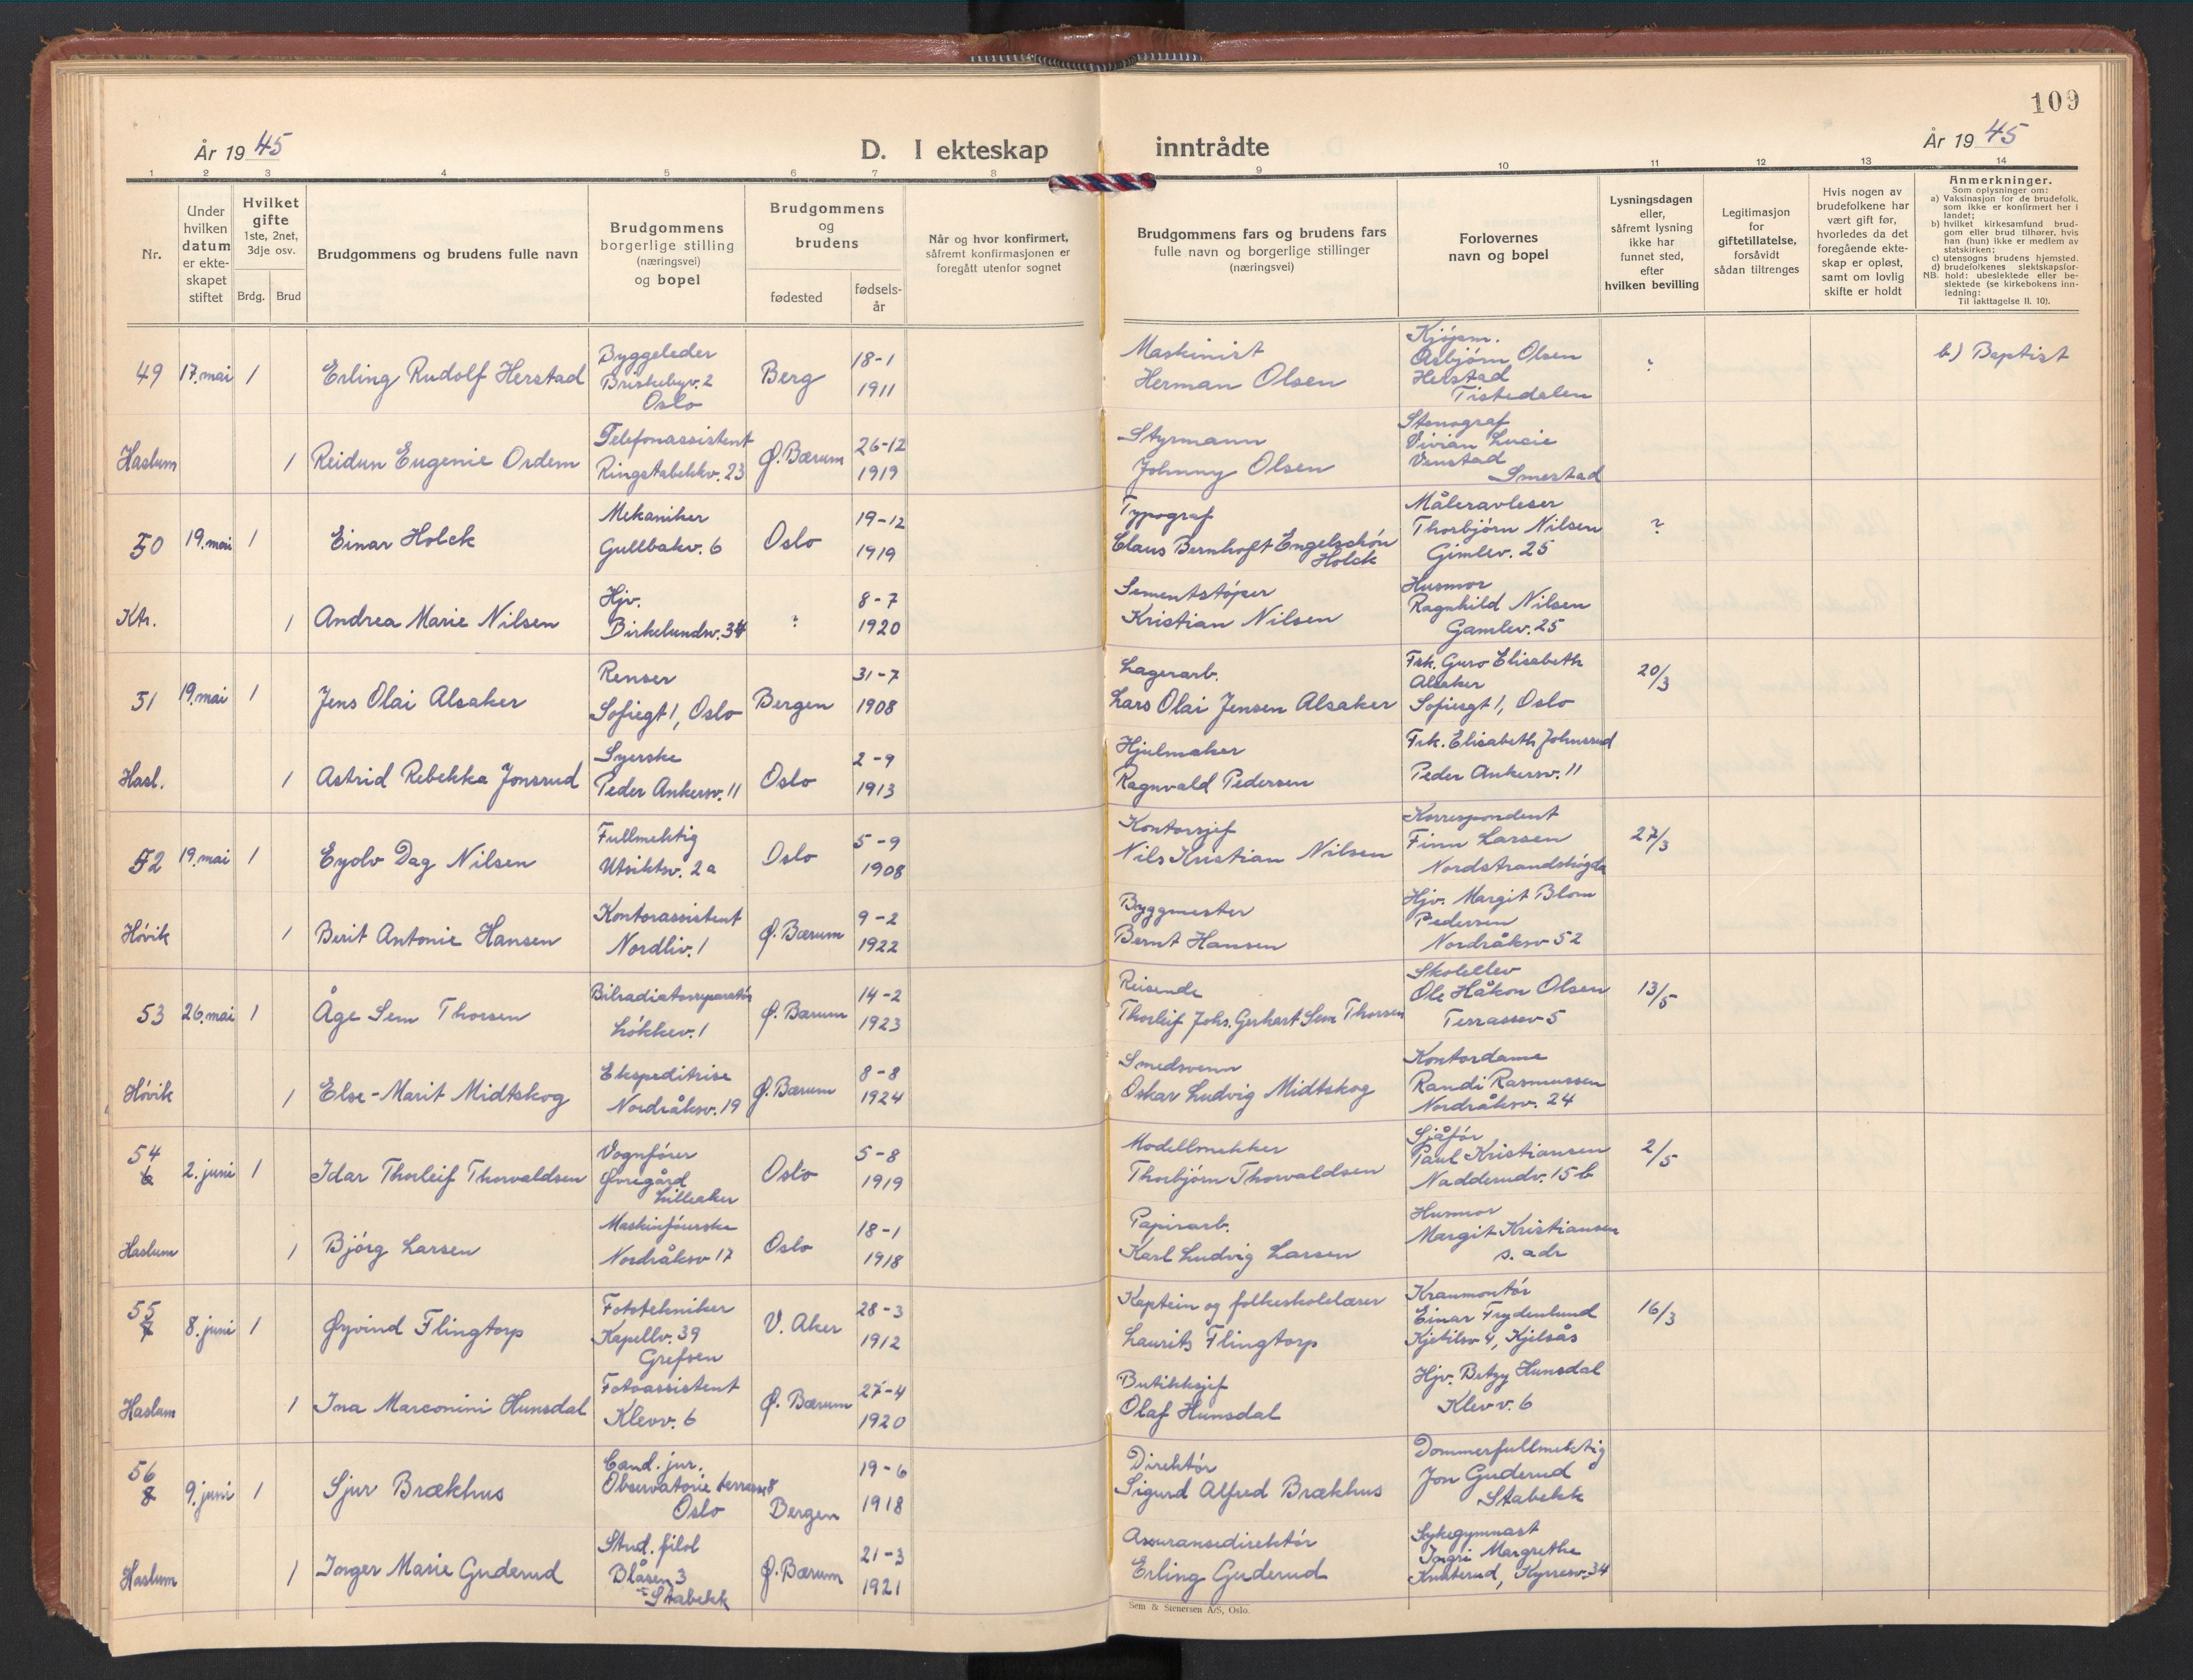 109
År 1945
D. I ekteskap inntrådte
År 1945
1 2 3 4 5 6 7 8 9 10 11 12 13 14
Nr.
Under
hvilken
datum
er ekte-
skapet
stiftet
Hvilket
gifte
1ste, 2net,
3dje osv.
Brdg. Brud
Brudgommens og brudens fulle navn
Brudgommens
borgerlige stilling
(næringsvei)
og bopel
Brudgommens
og
brudens
fødested
fødsels-
år
Når og hvor konfirmert,
såfremt konfirmasjonen er
foregått utenfor sognet
Brudgommens fars og brudens fars
fulle navn og borgerlige stillinger
(næringsvei)
Forlovernes
navn og bopel
Lysningsdagen
eller,
såfremt lysning
ikke har
funnet sted,
efter
hvilken bevilling
Legitimasjon
for
giftetillatelse,
forsåvidt
sådan tiltrenges
Hvis nogen av
brudefolkene har
vært gift før,
hvorledes da det
foregående ekte-
skap er opløst,
samt om lovlig
skifte er holdt
Anmerkninger.
Som oplysninger om:
a) Vaksinasjon for de brudefolk.
som ikke er konfirmert her i
landet;
b) hvilket kirkesamfund brud-
gom eller brud tilhører, hvis
han (hun) ikke er medlem av
statskirken;
c) utensogns brudens hjemsted.
d) brudefolkenes slektskapsfor-
NB. hold: ubeslektede eller be-
slektede (se kirkebokens inn-
ledning:
Til iakttagelse II. 10).
49 17. mai 1 Erling Rudolf Herstad
Byggeleder
Briskebyv. 2
Oslo
Berg
18-1
1911
Maskinist
Herman Olsen
Kjøpm.
Asbjørn Olsen
Herstad
Tistedalen
?
b) Baptist
Haslum 1 Reidun Eugenie Ordem
Telefonassistent
Ringstabekkv. 23
Ø. Bærum
26-12
1919
Styrmann
Johnny Olsen
Stenograf
Vivian Lucie
Venstad
Smestad
50 19. mai 1 Einar Holck
Mekaniker
Gullbakv. 6
Oslo
19-12
1919
Typograf
Claus Bernhoft Engelschøn
Holck
Måleravleser
Thorbjørn Nilsen
Gimlev. 25
?
Ktr. 1 Andrea Marie Nilsen
Hjv.
Birkelundv. 34
?
8-7
1920
Sementstøper
Kristian Nilsen
Husmor
Ragnhild Nilsen
Gamlev. 25
51 19. mai 1 Jens Olai Alsaker
Renser
Sofiegt 1, Oslo
Bergen
31-7
1908
Lagerarb.
Lars Olai Jensen Alsaker
Frk. Guro Elisabeth
Alsaker
Sofiesgt 1, Oslo
20/3
Hasl. 1 Astrid Rebekka Jonsrud
Syerske
Peder Ankersv. 11
Oslo
2-9
1913
Hjulmaker
Ragnvald Pedersen
Frk. Elisabeth Johnsrud
Peder Ankersv. 11
52 19. mai 1 Eyolv Dag Nilsen
Fullmektig
Utsiktsv. 2a
Oslo
5-9
1908
Kontorsjef
Nils Kristian Nilsen
Korrespondent
Finn Larsen
Nordstrandshøgda
27/3
Høvik 1 Berit Antonie Hansen
Kontorassistent
Nordliv. 1
Ø. Bærum
9-2
1922
Byggmester
Bernt Hansen
Hjv. Margit Blom
Pedersen
Nordråksv 52
53 26. mai 1 Åge Sem Thorsen
Bilradiatorreparatør
Løkkev. 1
Ø. Bærum
14-2
1923
Reisende
Thorleif Johs. Gerhart Sem Thorsen
Skoleelev
Ole Håkon Olsen
Terrassev 5
13/5
Høvik 1 Else-Marit Midtskog
Ekspeditrise
Nordråksv. 19
Ø. Bærum
8-8
1924
Smedsvenn
Oskar Ludvig Midtskog
Kontordame
Randi Rasmussen
Nordråksv. 24
54
6 2. juni 1 Idar Thorleif Thorvaldsen
Vognfører
Øvregård
Lilleaker
Oslo
5-8
1919
Modellsnekker
Thorbjørn Thorvaldsen
Sjåfør
Paul Kristiansen
Nadderudv. 15 b
2/5
Haslum 1 Bjørg Larsen
Maskinførerske
Nordråksv 17
Oslo
18-1
1918
Papirarb.
Karl Ludvig Larsen
Husmor
Margit Kristiansen
s. adr
55
7 8. juni 1 Øyvind Flingtorp
Fototekniker
Kapellv. 39
Grefsen
V. Aker
28-3
1912
Kaptein og folkeskolelærer
Laurits Flingtorp
Kranmontør
Einar Frydenlund
Kjetilsv 4, Kjelsås
16/3
Haslum 1 Ina Marconini Hunsdal
Fotoassistent
Klevv. 6
Ø. Bærum
27-4
1920
Butikksjef
Olaf Hunsdal
Hjv. Betzy Hunsdal
Klevv. 6
56
8 9. juni 1 Sjur Brækhus
Cand. jur.
Observatorie terrasse 8
Oslo
Bergen
19-6
1918
Direktør
Sigurd Alfred Brækhus
Dommerfullmektig
Jon Guderud
Stabekk
Haslum 1 Inger Marie Guderud
Stud. filol
Blåsen 3
Stabekk
Ø. Bærum
21-3
1921
Assuransedirektør
Erling Guderud
Sykegymnast
Ingri Margrethe
Knaterud, Kyrresv. 34
Sem & Stenersen A/S, Oslo.